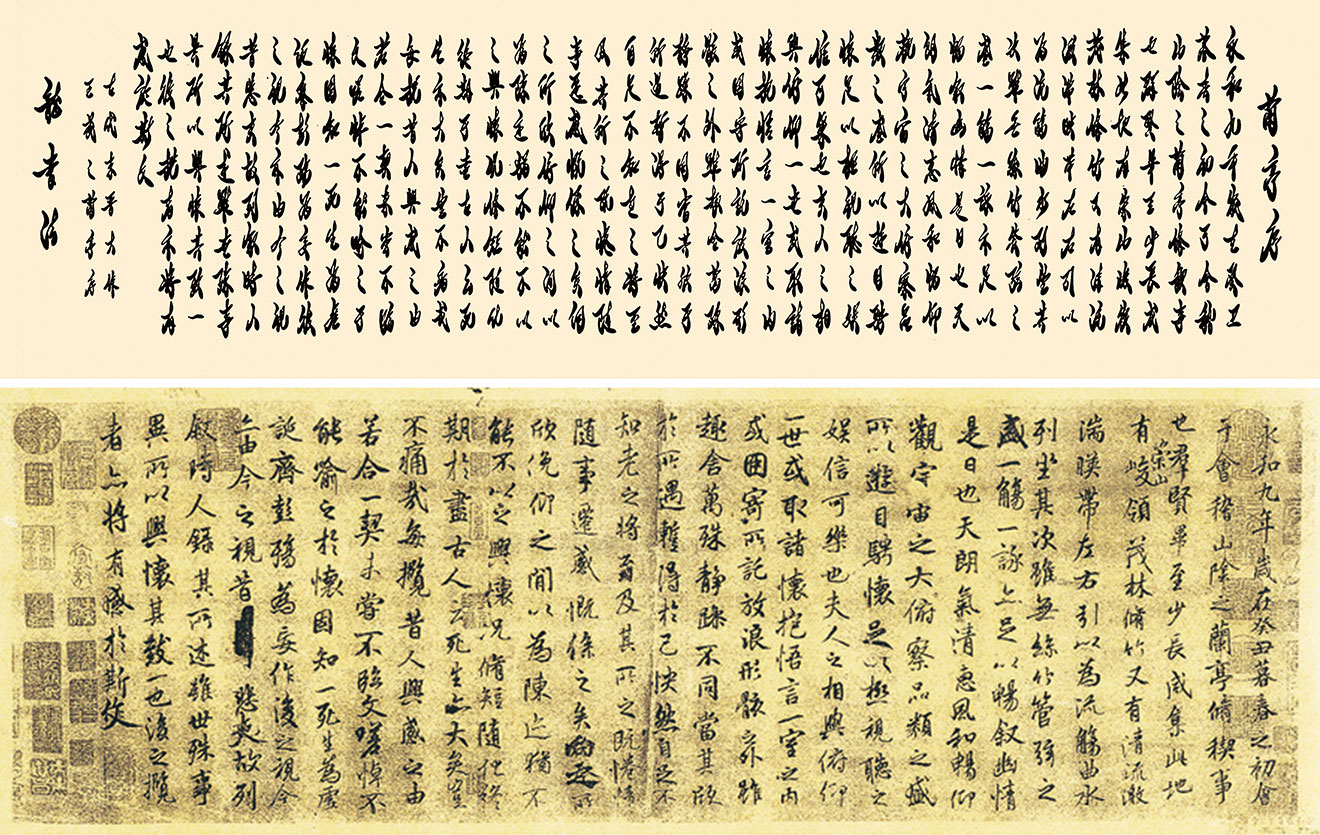 蘭亭序
永和九年歲在癸丑
暮春之初會于會稽
山陰之蘭亭修禊事
也群賢畢至少長咸
集此地有崇山峻領
茂林修竹又有清流
激湍映帶左右引以
為流觴曲水列坐其
次雖無絲竹管弦之
盛一觴一詠亦足以
暢敘幽情是日也天
朗氣清惠風和暢仰
觀宇宙之大俯察品
類之盛所以遊目騁
懷足以極視聽之娛
信可樂也夫人之相
與俯仰一世或取諸
懷抱悟言一室之內
或因寄所託放浪形
骸之外雖趣舍萬殊
靜躁不同當其欣於
所遇暫得於己快然
自足不知老之將至
及其所之既惓情隨
事遷感慨係之矣向
之所欣俛仰之間以
為陳迹猶不能不以
之興懷況修短隨化
終期於盡古人云死
生亦大矣豈不痛哉
每攬昔人興感之由
若合一契未嘗不臨
文嗟悼不能喻之於
懷固知一死生為虛
誕齊彭殤為妄作後
之視今亦由今之視
昔悲夫故列敘時人
錄其所述雖世殊事
異所以興懷其致一
也後之攬者亦將有
感於斯文
永和九年歲在癸丑暮春之初會
于會稽山陰之蘭亭脩禊事
也群賢畢至少長咸集此地
有崇山峻領茂林脩竹又有清流激
湍暎帶左右引以為流觴曲水
列坐其次雖無絲竹管弦之
盛一觴一詠亦足以暢敘幽情
是日也天朗氣清惠風和暢仰
觀宇宙之大俯察品類之盛
所以遊目騁懷足以極視聽之
娛信可樂也夫人之相與俯仰
一世或取諸懷抱悟言一室之內
或因寄所託放浪形骸之外雖
趣舍萬殊靜躁不同當其欣
於所遇暫得於己快然自足不
知老之將至及其所之既惓情
隨事遷感慨係之矣向之所
欣俛仰之間以為陳迹猶不
能不以之興懷況脩短隨化終
期於盡古人云死生亦大矣豈
不痛哉每攬昔人興感之由
若合一契未嘗不臨文嗟悼不
能喻之於懷固知一死生為虛
誕齊彭殤為妄作後之視今
亦由今之視昔悲夫故列
敘時人錄其所述雖世殊事
異所以興懷其致一也後之攬
者亦將有感於斯文